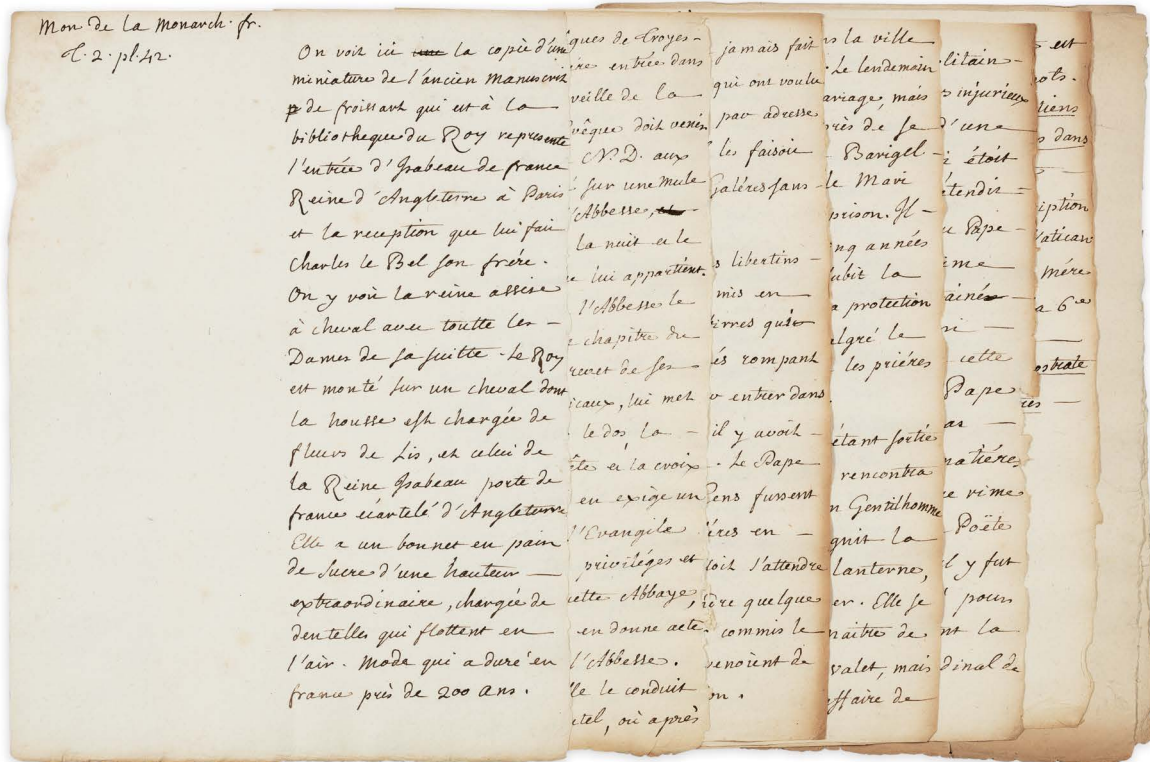 Mon. de la Monarch. fr.
T. 2. pl. 42.
On voit ici une la copie d'une
miniature de l'ancien Manuscrit
de froissart qui est à la
bibliotheque du Roy represente
l'entrée d'Isabeau de france
Reine d'Angleterre à Paris
et la reception que lui fait
Charles le Bel son frere.
On y voit la reine assise
à cheval avec toutte les
Dames de sa suitte. Le Roy
est monté sur un cheval dont
la housse est chargée de
fleurs de Lis, et celui de
la Reine Isabeau porte de
france écartelé d'Angleterre
Elle a un bonnet en pain
de sucre d'une hauteur
extraordinaire, chargée de
dentelles qui flottent en
l'air. Mode qui a duré en
france près de 200 ans.
ques de Troyes
ire entrée dans
veille de la
vêque doit venir
N.D. aux
sur une Mule
l'Abbesse, et
la nuit et le
e lui appartient.
l'Abbesse le
chapitre du
revet de ses
icaux, lui met
le dos la
ête et la croix
en exige un
l'Evangile
privilèges et
cette Abbaye,
en donne acte
l'Abbesse.
lle le conduit
utel, où après
jamais fait
qui ont voulu
par adresse
les faisoit
Galéres sans
s libertins
mis en
birres qui
és rompant
entrer dans
il y avoit
. Le Pape
gens fussent
éres en
toit s'attendre
ière quelque
commis le
venoient de
on.
s la ville
. Le lendemain
ariage, mais
rès de se
Barigel
le Mari
prison. Il
nq années
subit la
a protection
algré le
les priéres
étant sortie
rencontra
n Gentilhomme
gnit la
lanterne,
er. Elle se
naitre de
valet, mais
affaire de
litain
s injurieux
d'une
i étoit
étendit
u Pape
ime
ainé
ri
cette
Pape
as
matiéres
e rime
Poëte
il y fut
pour
nt la
dinal de
est
ots.
liens
s dans
iption
Vatican
mére
a 6e
ostrate
res